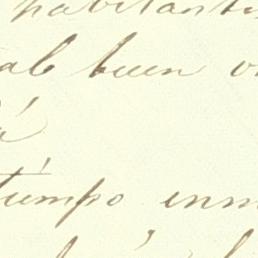 habitant
al buen
á
tiempo inm